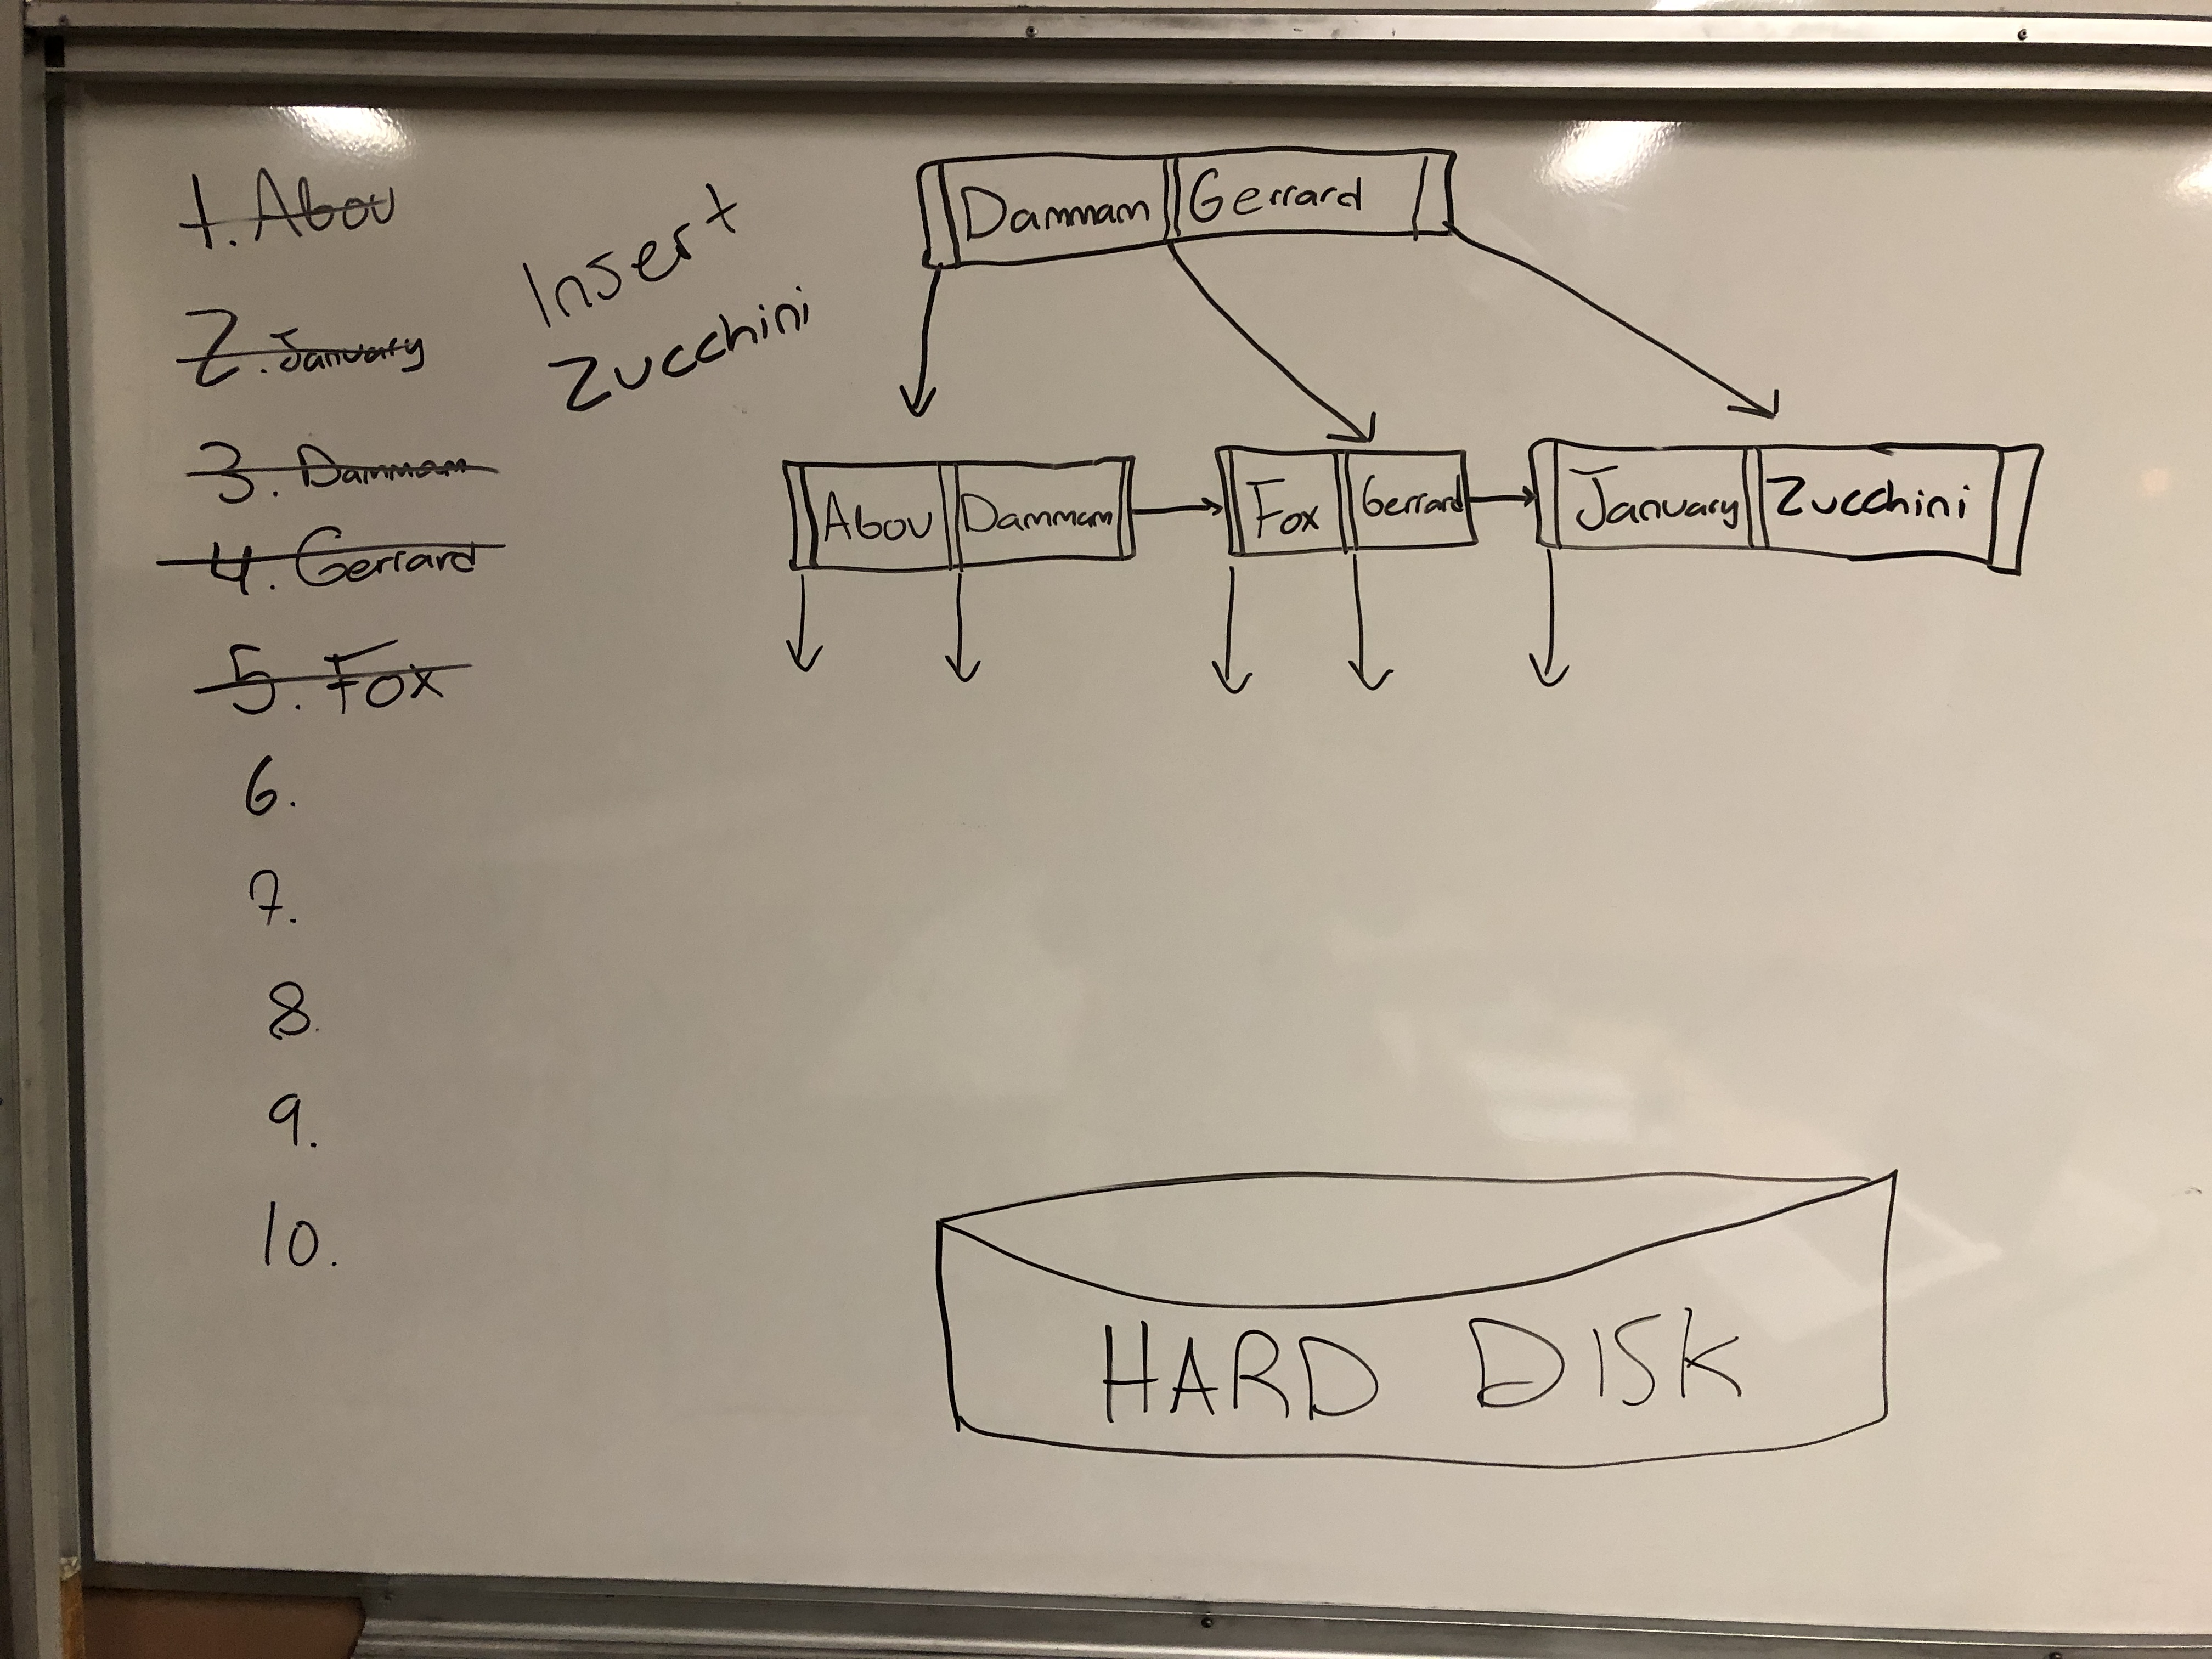 1. Abou
2. January
3. Dammam
4. Gerrard
5. Fox
6.
7.
8.
9.
10.
Insert
Zucchini
Dammam Gerrard
Abou Dammam Fox Gerrard January Zucchini
HARD DISK